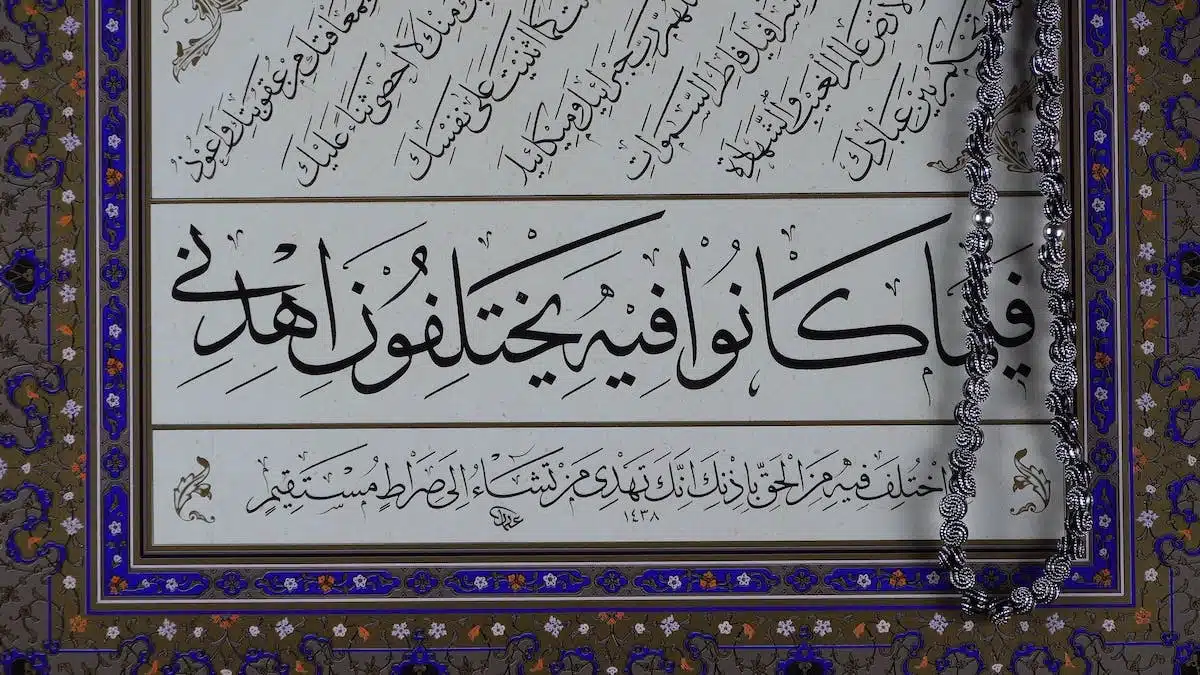 وبمعافاتك مِنْ عُقُوبَتِكَ وَاَعُوذُ
مِنْكَ لَا اُحْصِى ثَنَاءً عَلَيْكَ
كَمَا اَثْنَيْتَ عَلَى نَفْسِكَ
رَبَّ جَبْرَئِيلَ وَمِيكَائِيلَ
فَاطِرَ السَّمٰوَاتِ
عَالِمَ الْغَيْبِ وَالشَّهَادَةِ
بَيْنَ عِبَادِكَ
فِيمَا كَانُوا فِيهِ يَخْتَلِفُونَ اهْدِنِى
اخْتُلِفَ فِيهِ مِنَ الْحَقِّ بِاِذْنِكَ اِنَّكَ تَهْدِى مَنْ تَشَاءُ اِلَى صِرَاطٍ مُسْتَقِيمٍ
١٤٣٨